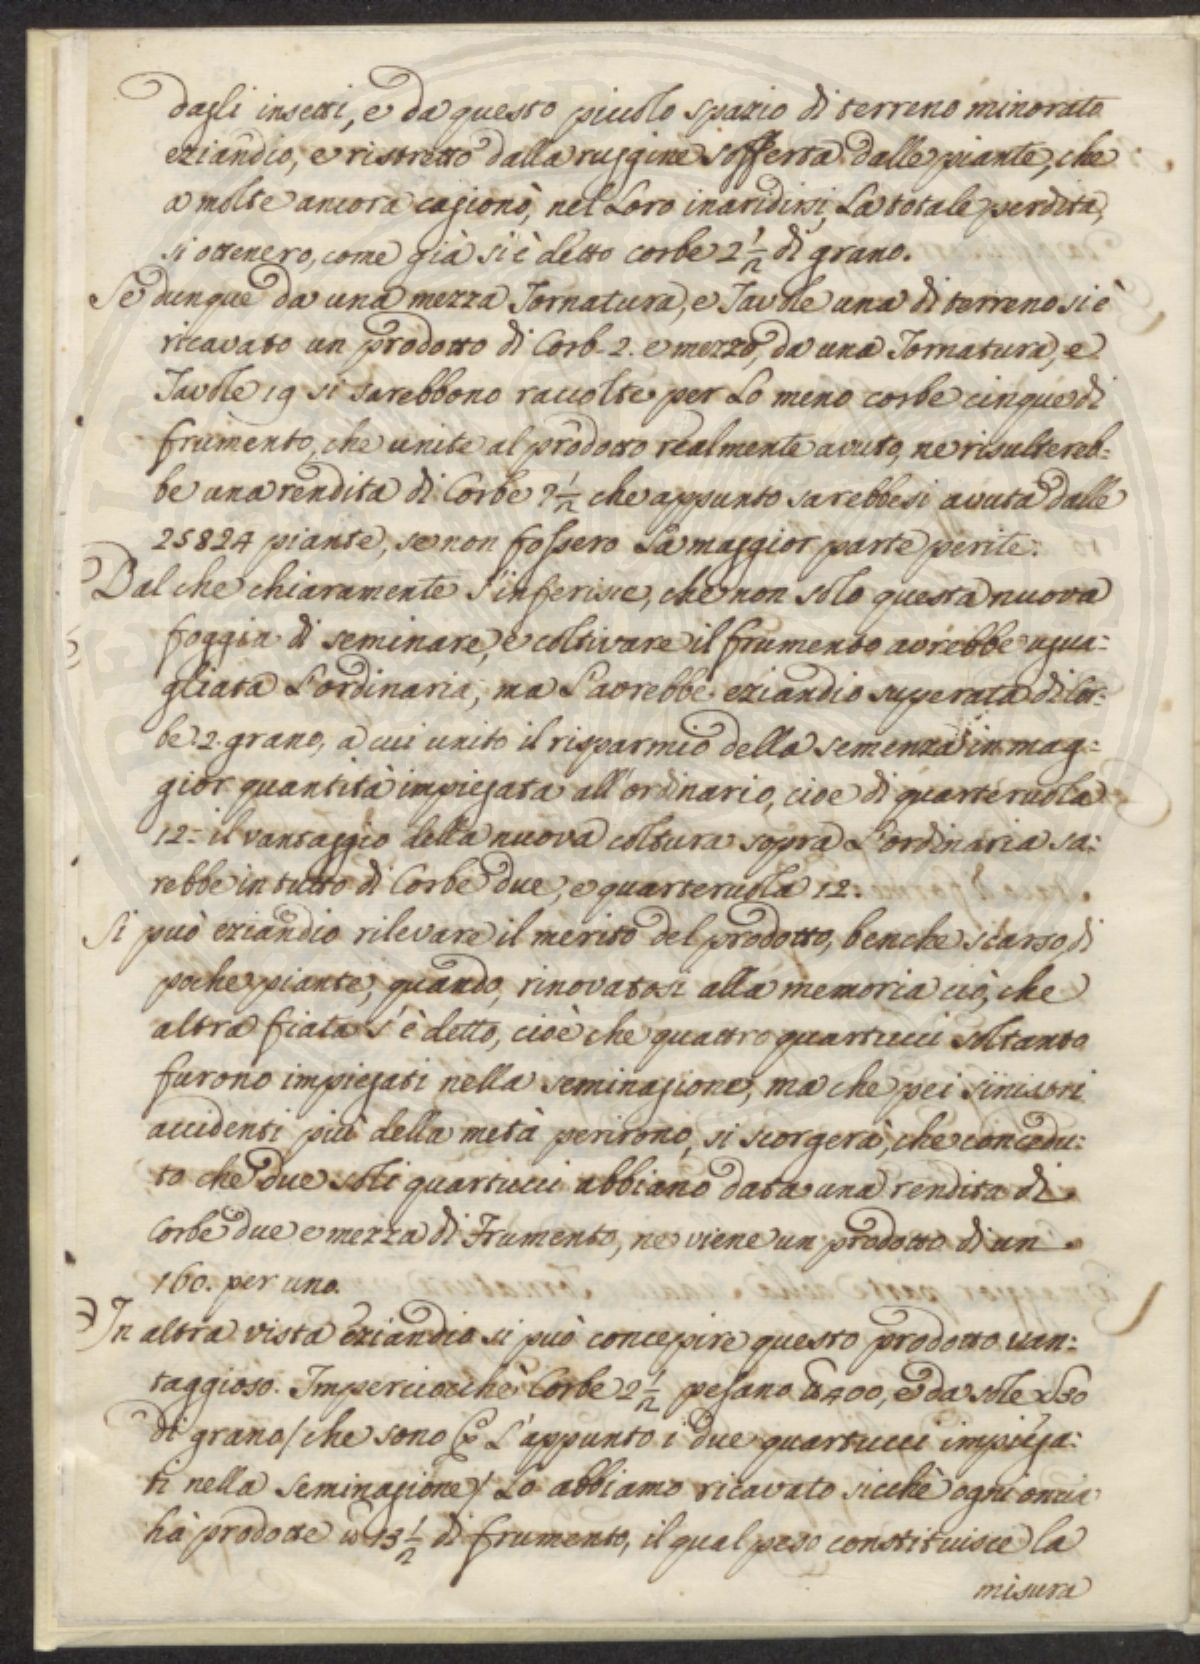 dagli insetti, e da questo piccolo spazio di terreno minorato
eziandio, e ristretto dalla ruggine sofferta dalle piante, che
a molte ancora cagionò, nel Loro inaridirsi, La totale perdita,
si ottenero, come già si è detto corbe 2 1/2 di grano.
Se dunque da una mezza Tornatura, e Tavole una di terreno si è
ricavato un prodotto di Corb. 2. e mezzo, da una Tornatura, e
Tavole 19 si sarebbono raccolte per Lo meno corbe cinque di
frumento, che unite al prodotto realmente avuto, ne risultereb=
be una rendita di Corbe 7 1/2 che appunto sarebbesi avuta dalle
25824 piante, se non fossero La maggior parte perite.
Dal che chiaramente s'inferisce, che non solo questa nuova
foggia di seminare, e coltivare il frumento avrebbe ugua=
gliata L'ordinaria, ma L'avrebbe eziandio superata di Cor=
be 2. grano, a cui unito il risparmio della semenza in mag=
gior quantità impiegata all'ordinario, cioe di quarteruola
12= il vantaggio della nuova coltura sopra L'ordinaria sa=
rebbe in tutto di Corbe due, e quarteruola 12.
Si può eziandio rilevare il merito del prodotto, benche scarso, di
poche piante, quando, rinovatosi alla memoria ciò, che
altra fiata s'è detto, cioè che quattro quartucci soltanto
furono impiegati nella seminagione, ma che pei sinistri
accidenti più della metà perirono, si scorgerà, che concedu=
to che due soli quartucci abbiano data una rendita di
Corbe due e mezza di Frumento, ne viene un prodotto di un
160. per uno.
In altra vista eziandio si può concepire questo prodotto van=
taggioso. Imperciocchè Corbe 2 1/2 pesano 400, e da sole 30
di grano / che sono L'appunto i due quartucci impiega=
ti nella seminagione / Lo abbiamo ricavato sicchè ogni oncia
hà prodotte 13 1/2 di frumento, il qual peso constituisce la
misura